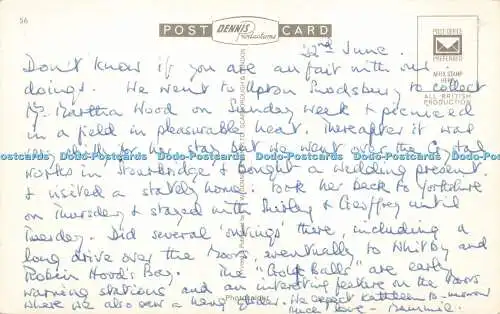 56
POST DENNIS Productions CARD
POST OFFICE PREFERRED
AFFIX STAMP HERE
ALL-BRITISH PRODUCTION
22nd June.
Don't know if you are au fait with our
doings. We went to Upton Snodsbury to collect
Mrs. Martha Wood on Sunday week & picniced
in a field in pleasurable heat. Thereafter it was
very chilly for her stay but we went over the Crystal
works in Stourbridge & bought a wedding present.
& visited a stately home. Took her back to Yorkshire
on Thursday & stayed with Shirley & Geoffrey until
Tuesday. Did several 'outings' there, including a
long drive over the Moors, eventually to Whitby and
Robin Hood's Bay. The "Golf Balls" are early
warning stations and an interesting feature on the Moors
where we also saw a hang glider. We expect Kathleen to-morrow
Much love -
Dodo-Postcards Dodo-Postcards Dodo-Postcards Dodo-Postcards
Dodo-Postcards Dodo-Postcards Dodo-Postcards Dodo-Postcards